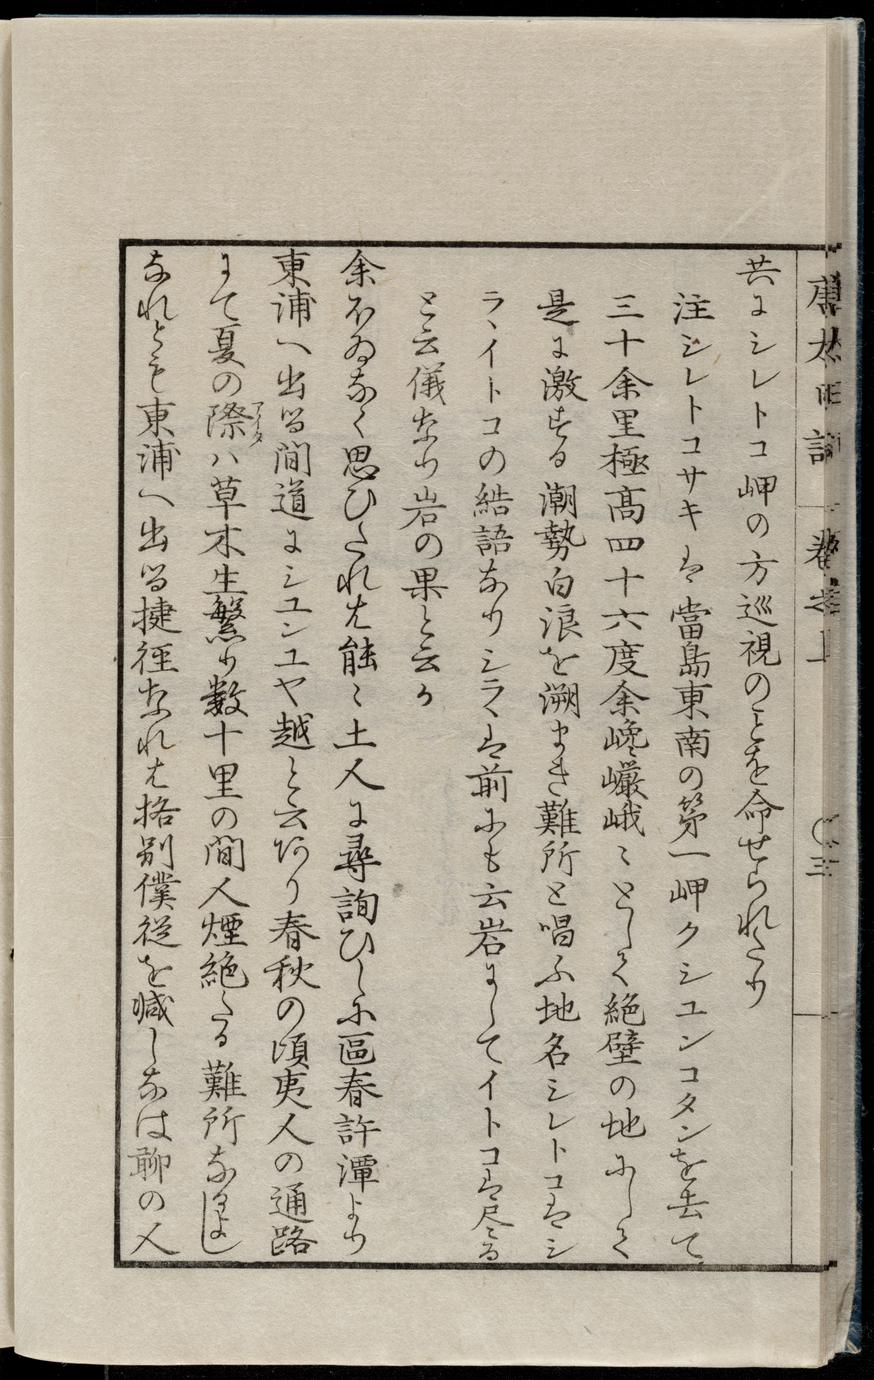 共にシレトコ岬の方巡視のことを命せられたり
注シレトコサキは當島東南の第一岬クシユンコタンを去て
三十余里極高四十六度余巉巖峨〻として絶壁の地にして
是に激する潮勢白浪を溯まき難所と唱ふ地名シレトコはシ
ラヽイトコの結語なりシラヽは前にも云岩にしてイトコは尽る
と云儀なり岩の果と云か
余ほゐなく思ひたれは能〻土人に尋詢ひしに區春許潭より
東浦へ出る間道にシユンユヤ越と云あり春秋の頃夷人の通路
にて夏の際アイタハ草木生繁り数十里の間人煙絶たる難所なるよし
なれとも東浦へ出る捷徑なれは格別僕従を減しなは聊の人